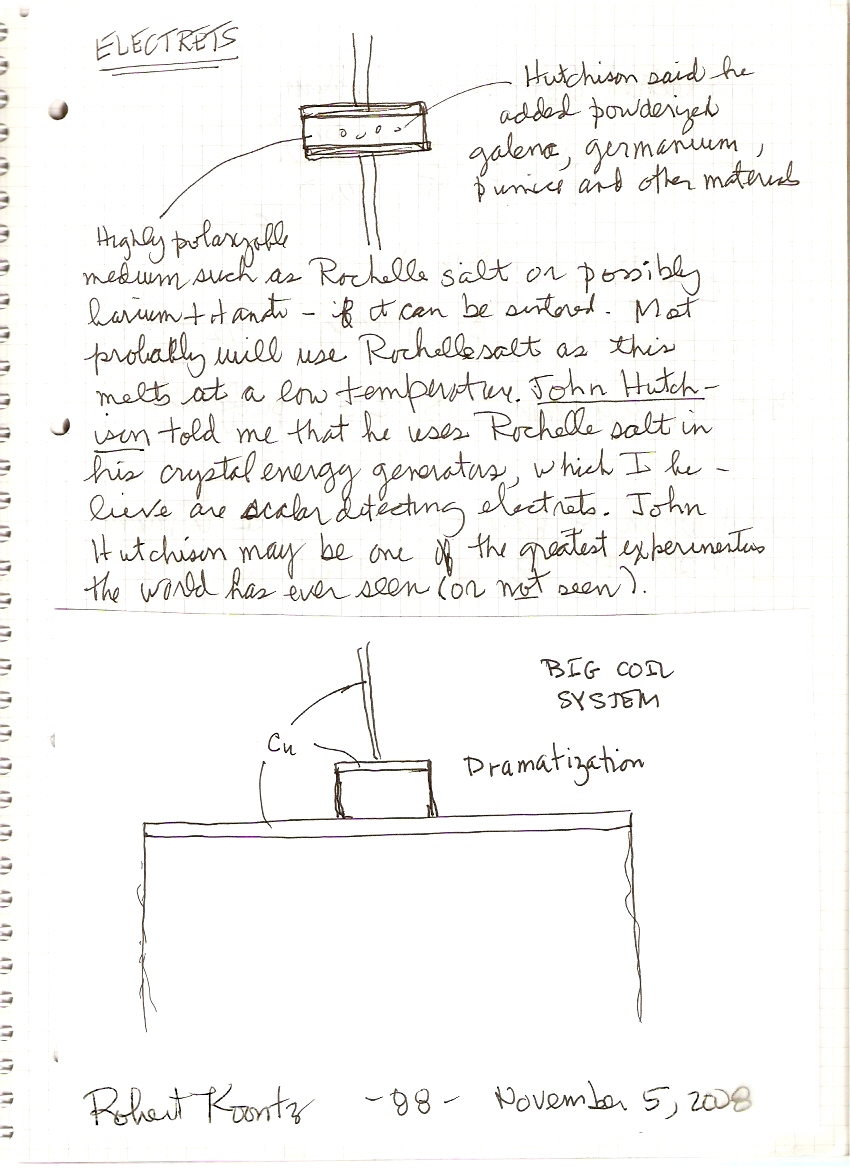 ELECTRETS
Hutchison said he
added powderized
galena, germanium,
pumice and other materials
Highly polarizable
medium such as Rochelle salt or possibly
barium titanate - if it can be sintered. Most
probably will use Rochelle salt as this
melts at a low temperature. John Hutch-
ison told me that he uses Rochelle salt in
his crystal energy generators, which I be-
lieve are scalar detecting electrets. John
Hutchison may be one of the greatest experimenters
the world has ever seen (or not seen).
BIG COIL
SYSTEM
Cu
Dramatization
Robert Koontz -98- November 5, 2008